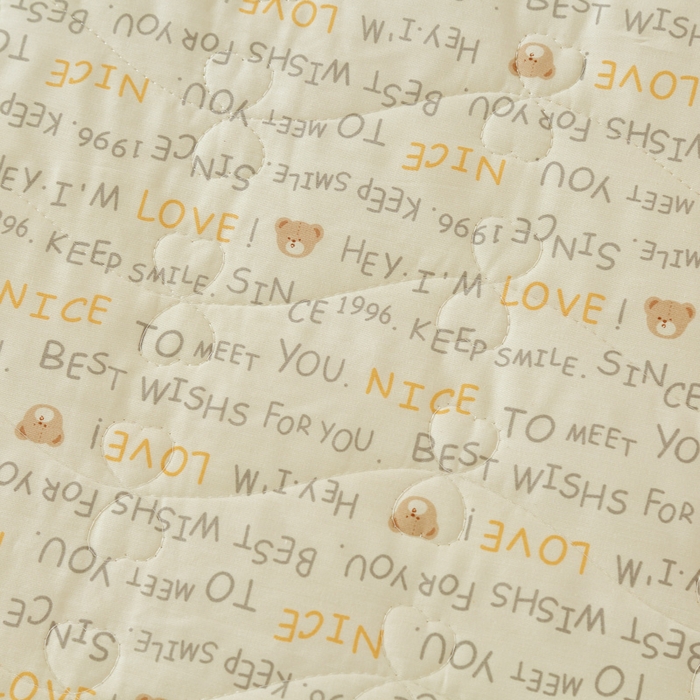 BEST WISH
LOVE HEY. I'M
BEST WISHES FOR YOU. BEST
LOVE!
NICE TO MEET YOU.
BEST WISHS FOR YOU.
KEEP SMILE. SINCE 1996.
NICE TO MEET YOU.
HEY. I'M LOVE! HEY. I'M LOVE!
SINCE 1996. KEEP SMILE.
996. KEEP SMILE. SINCE 1996. KEEP SMILE. SINCE
NICE TO MEET YOU. NICE TO MEET YO
BEST WISHS FOR YOU. BEST WISHS FOR
HEY. I'M LOVE!
HEY. I'M LOVE!
BEST WISHS FOR YOU.
BEST WISHS FOR YOU
NICE TO MEET YOU.
TO MEET YOU.
KEEP SMILE. SINCE
LOVE